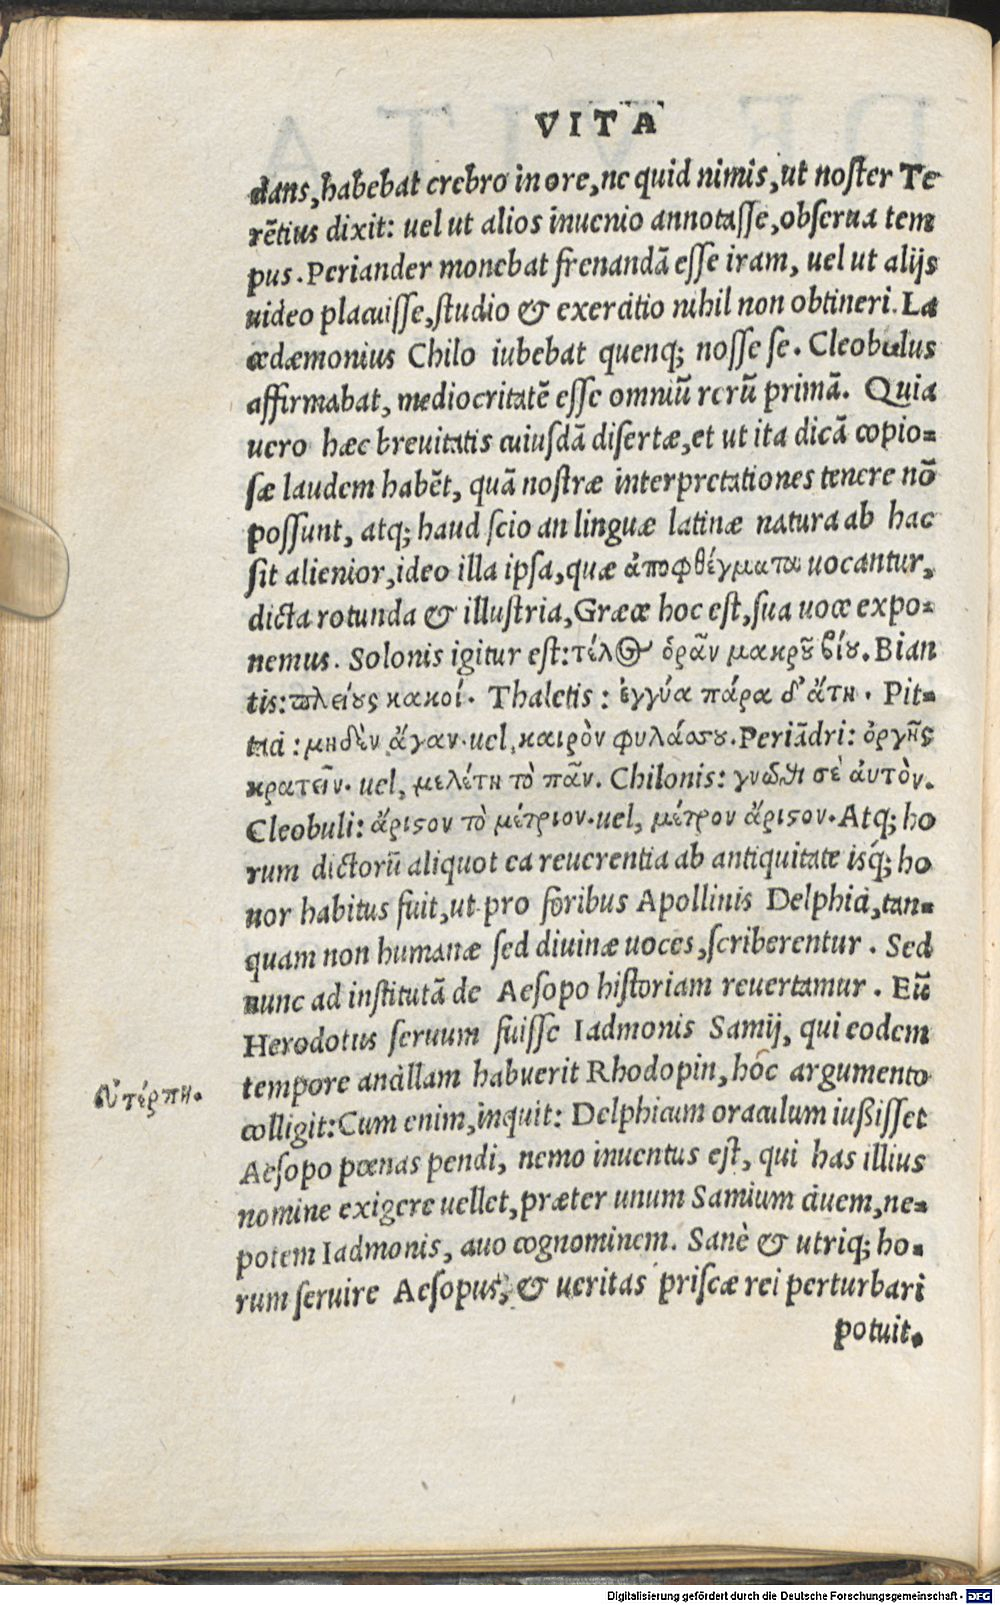 VITA
dans, habebat crebro in ore, ne quid nimis, ut noſter Te
rẽtius dixit: uel ut alios inuenio annotaſſe, obſerua tem
pus. Periander monebat frenandã eſſe iram, uel ut alijs
uideo placuiſſe, ſtudio & exercitio nihil non obtineri. La
cedæmonius Chilo iubebat quenq; noſſe ſe. Cleobulus
affirmabat, mediocritatẽ eſſe omniũ rerũ primã. Quia
uero hæc breuitatis cuiuſdã diſertæ, et ut ita dicã copio=
ſæ laudem habẽt, quã noſtræ interpretationes tenere nõ
poſſunt, atq; haud ſcio an linguæ latinæ natura ab hac
ſit alienior, ideo illa ipſa, quæ ἀποφθέγματα uocantur,
dicta rotunda & illuſtria, Græce hoc eſt, ſua uoce expo=
nemus. Solonis igitur eſt: τέλος ὁρᾶν μακροῦ βίου. Bian
tis: πλείους κακοί. Thaletis: ἐγγύα πάρα δ᾽ ἄτη. Pit=
taci: μηδὲν ἄγαν. uel, καιρὸν φυλάσσου. Periãdri: ὀργῆς
κρατεῖν. uel, μελέτη τὸ πᾶν. Chilonis: γνῶθι σὲ ἀυτὸν.
Cleobuli: ἄριστον τὸ μέτριον. uel, μέτρον ἄριστον. Atq; ho
rum dictorũ aliquot ea reuerentia ab antiquitate isq́; ho
nor habitus fuit, ut pro foribus Apollinis Delphici, tan=
quam non humanæ ſed diuinæ uoces, ſcriberentur. Sed
nunc ad inſtitutã de Aeſopo hiſtoriam reuertamur. Eũ
Herodotus ſeruum fuiſſe Iadmonis Samij, qui eodem
tempore ancillam habuerit Rhodopin, hôc argumento
ἐυτέρπη.
colligit: Cum enim, inquit: Delphicum oraculum iußiſſet
Aeſopo pœnas pendi, nemo inuentus eſt, qui has illius
nomine exigere uellet, præter unum Samium ciuem, ne=
potem Iadmonis, auo cognominem. Sanè & utriq; ho=
rum ſeruire Aeſopus, & ueritas priſcæ rei perturbari
potuit.
Digitalisierung gefördert durch die Deutsche Forschungsgemeinschaft - DFG